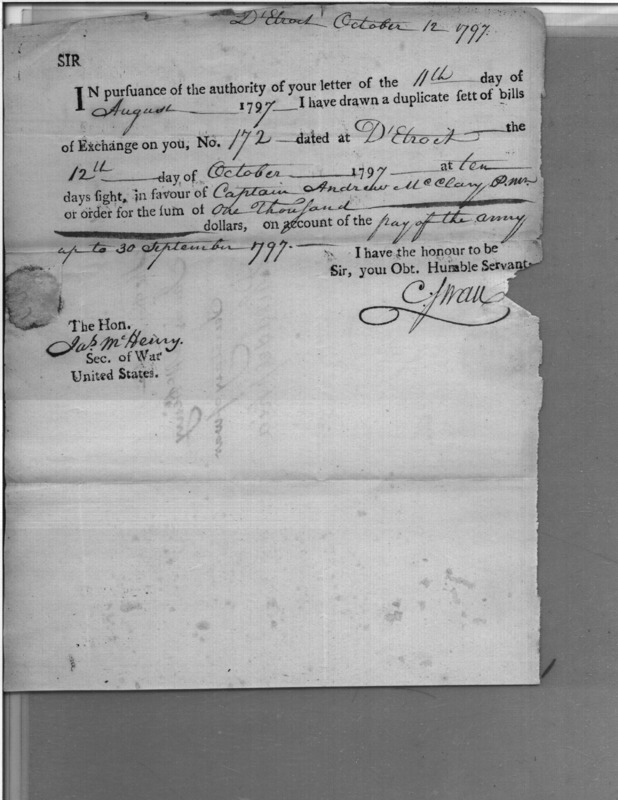 D'Etroit October 12 1797.
SIR
IN pursuance of the authority of your letter of the 11th day of
August 1797 I have drawn a duplicate sett of bills
of Exchange on you, No. 172 dated at D'Etroit the
12th day of October 1797 at ten
days sight, in favour of Captain Andrew McClary P.mr.
or order for the sum of One Thousand
dollars, on account of the pay of the army
up to 30 September 1797.
I have the honour to be
Sir, your Obt. Humble Servant.
C. Swan
The Hon.
Jas. McHenry.
Sec. of War
United States.